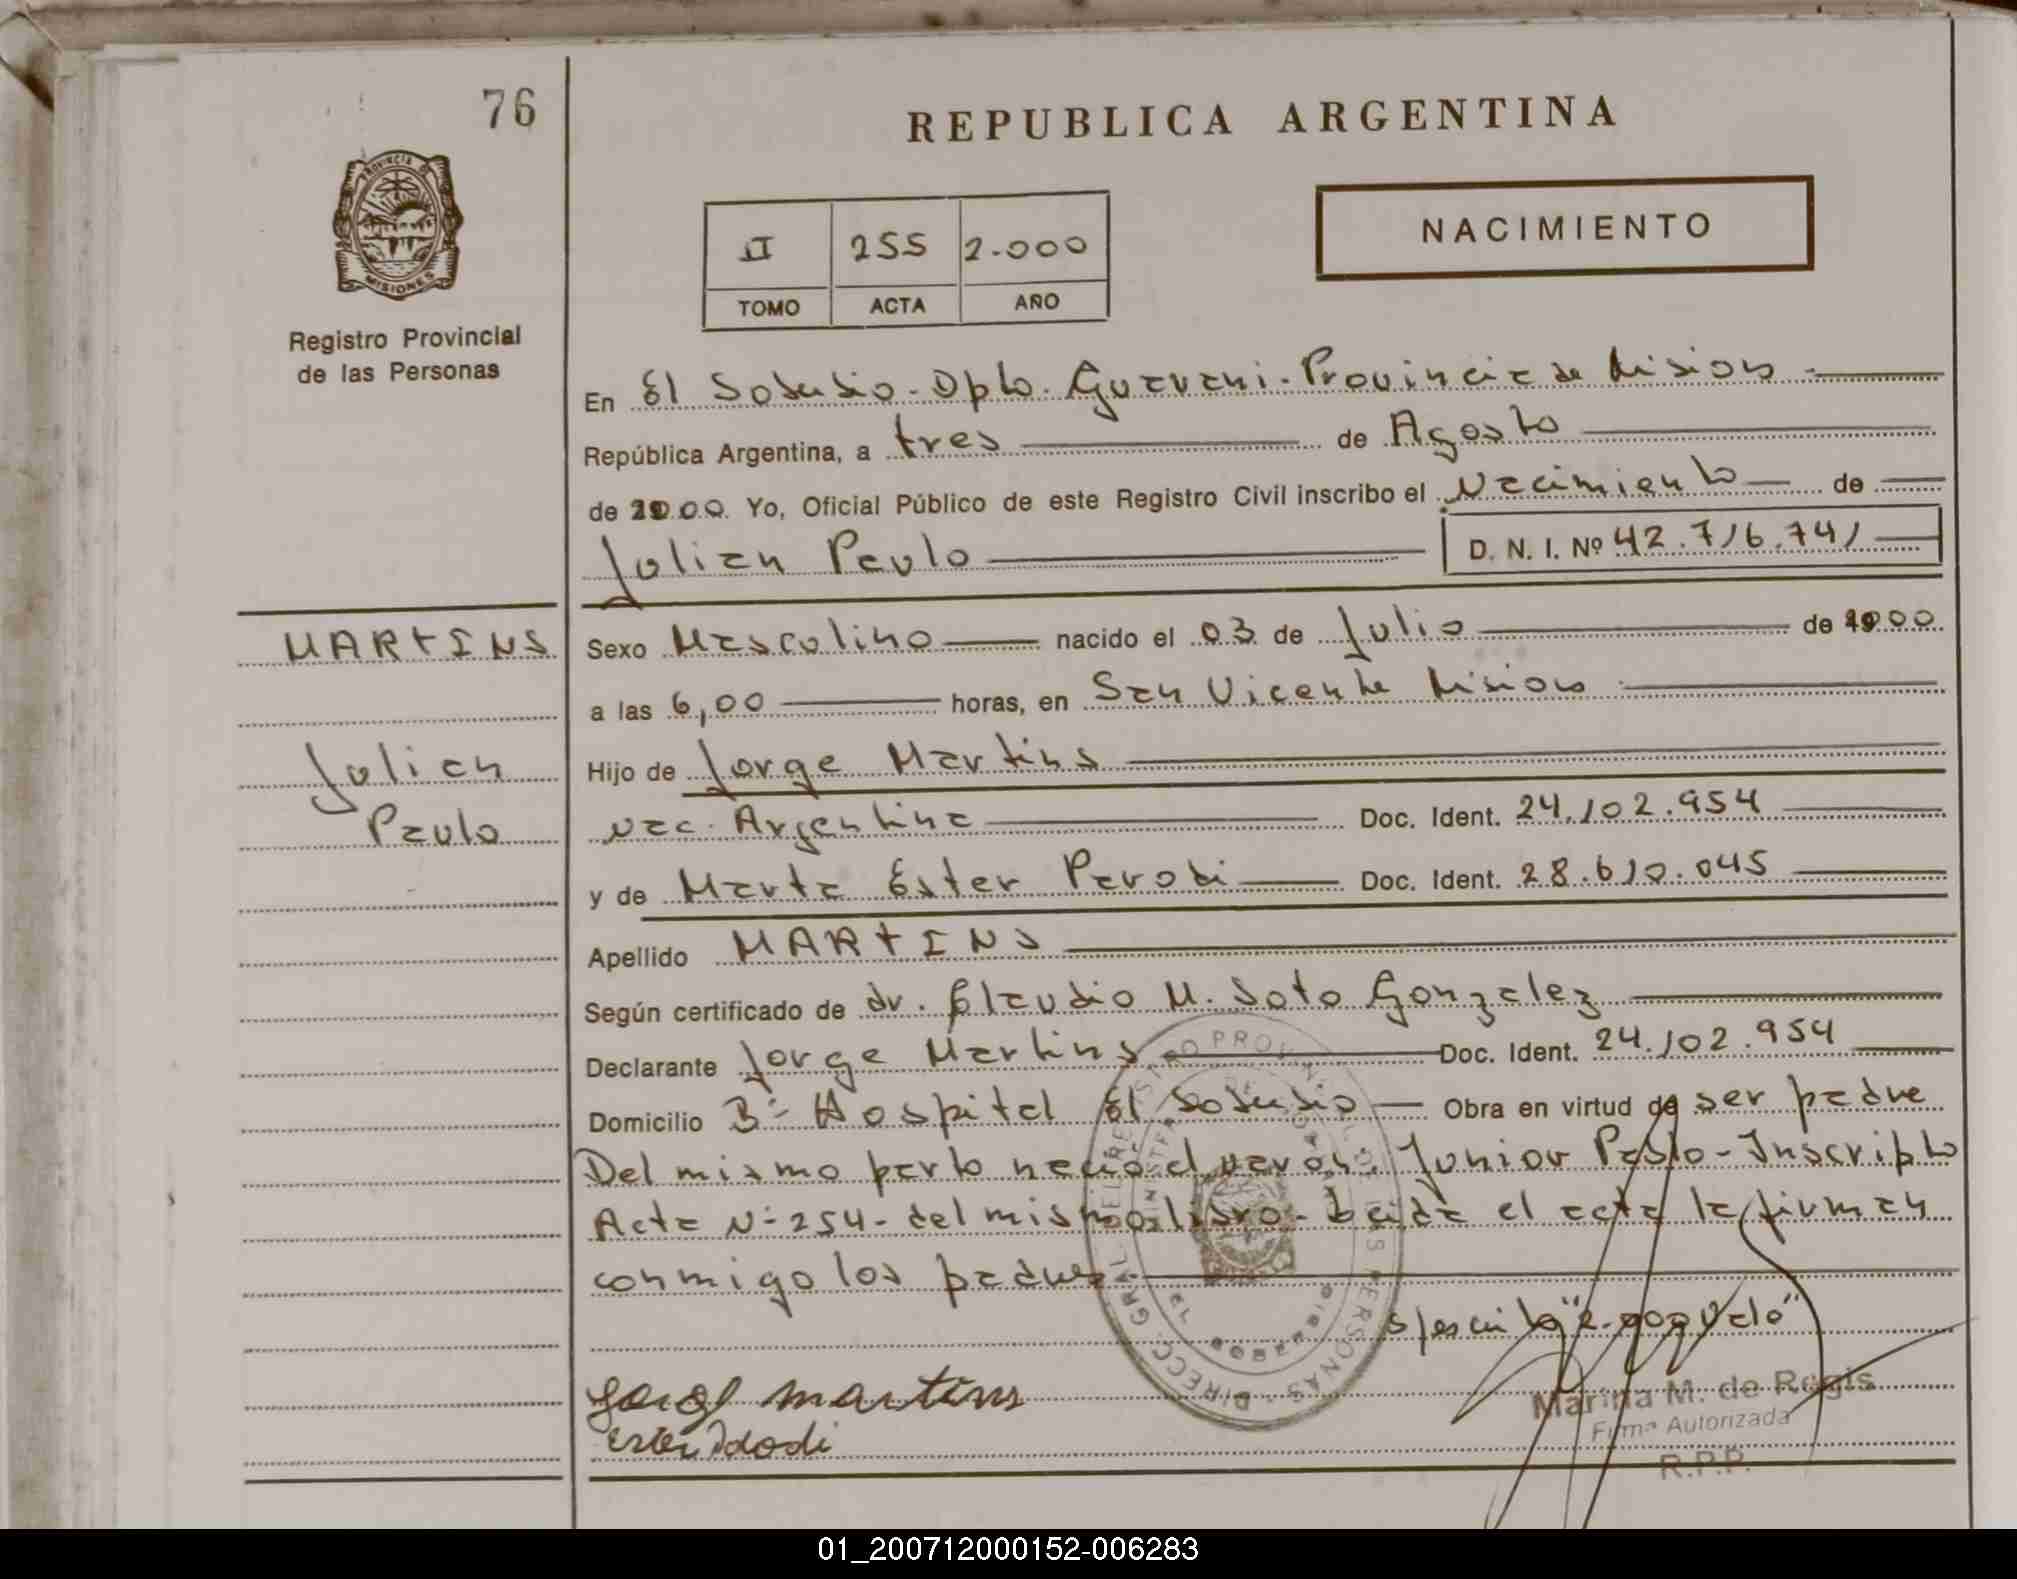 76
REPUBLICA ARGENTINA
PROVINCIA DE
MISIONES
Registro Provincial
de las Personas
II 255 2.000
TOMO ACTA AÑO
NACIMIENTO
En El Soberbio - Dpto. Guarani - Provincia de Misiones
República Argentina, a tres de Agosto
de 2000 Yo, Oficial Público de este Registro Civil inscribo el Nacimiento de
Julian Paulo D. N. I. Nº 42.716.741
MARTINS
Sexo Masculino nacido el 03 de Julio de 2000
a las 6,00 horas, en San Vicente Misiones
Julian
Hijo de Jorge Martins
Paulo
nac. Argentina Doc. Ident. 24.102.954
y de Marta Ester Doc. Ident. 28.610.045
Apellido MARTINS
Según certificado de dr. Claudio M. Soto Gonzalez
Declarante Jorge Martins Doc. Ident. 24.102.954
Domicilio Bº Hospital El Soberbio Obra en virtud de ser padre
Del mismo parto nació el varon Junior Pablo - Inscripto
Acta Nº 254 - del mismo libro - Leida el acta la firman
conmigo los padres
martins
Marina M. de Regis
Firma Autorizada
R.P.P.
01_200712000152-006283